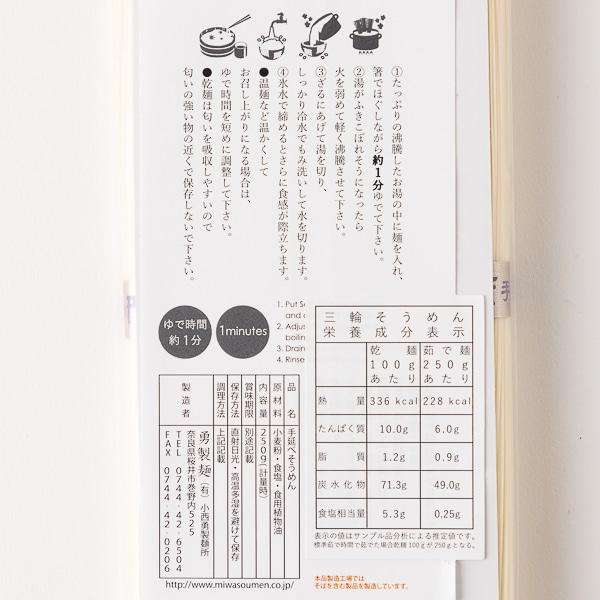 ①たっぷりの沸騰したお湯の中に麺を入れ、
箸でほぐしながら約1分ゆでて下さい。
②湯がふきこぼれそうになったら
火を弱めて軽く沸騰させて下さい。
③ざるにあげて湯を切り、
しっかり冷水でもみ洗いして水を切ります。
④氷水で締めるとさらに食感が際立ちます。
●温麺など温かくして
お召し上がりになる場合は、
ゆで時間を短めに調整して下さい。
●乾麺は匂いを吸収しやすいので
匂いの強い物の近くで保存しないで下さい。
ゆで時間
約1分
1minutes
1. Put
and
2. Adjus
boilin
3. Drain
4. Rinse
三輪そうめん
栄養成分表示
乾麺 100g あたり
茹で麺 250g あたり
熱量 336 kcal 228 kcal
たんぱく質 10.0g 6.0g
脂質 1.2g 0.9g
炭水化物 71.3g 49.0g
食塩相当量 5.3g 0.25g
表示の値はサンプル品分析による推定値です。
標準茹で時間で茹でた場合乾麺100gが250gとなる。
品名 手延べそうめん
原材料 小麦粉・食塩・食用植物油
内容量 250g(計量時)
賞味期限 別途記載
保存方法 直射日光・高温多湿を避けて保存
調理方法 上記記載
製造者
勇製麺 (有)小西勇製麺所
奈良県桜井市巻野内525
TEL 0744-42-6504
FAX 0744-42-0206
http://www.miwasoumen.co.jp/
本品製造工場では
そばを含む製品を製造しています。
手